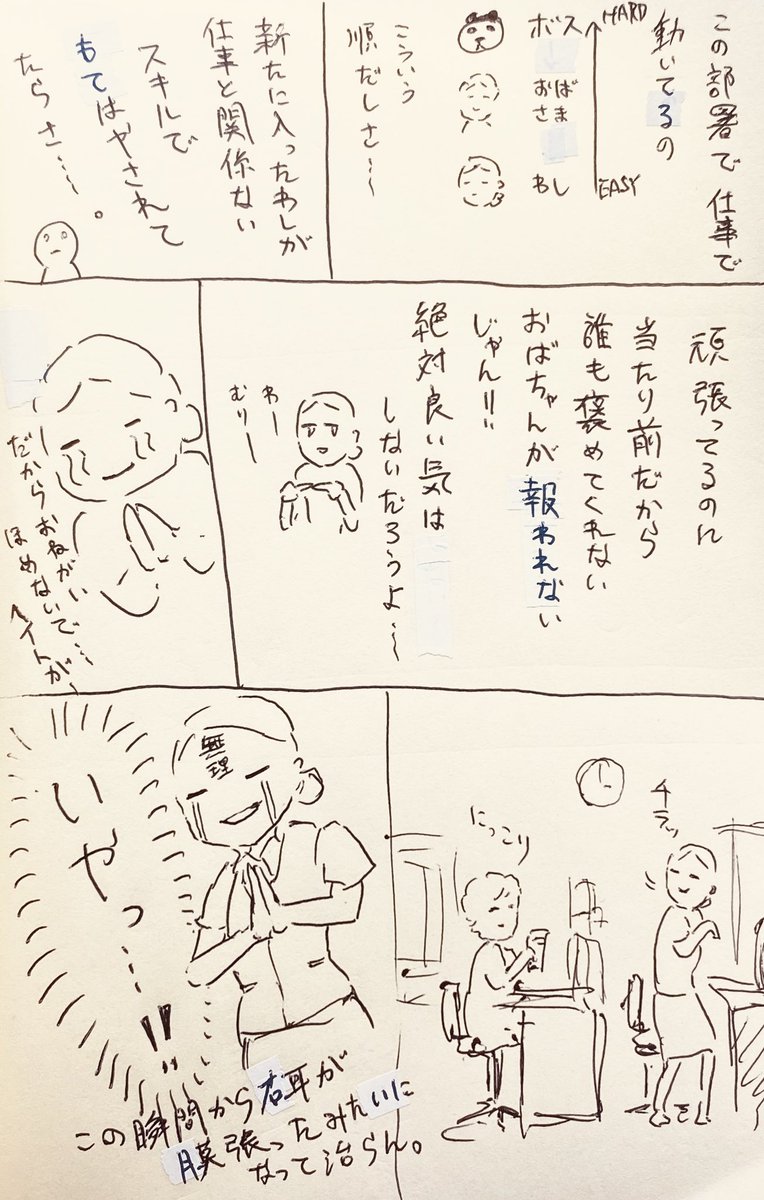 この部署で仕事で
動いてるの
HARD
EASY
ボス
おば
さま
わし
こういう
順だしさ…〜
新たに入ったわしが
仕事と関係ない
スキルで
もてはやされて
たらさ…。
頑張ってるのに
当たり前だから
誰も褒めてくれない
おばちゃんが報われない
じゃん!!
絶対良い気は
しないだろうよ…〜
わー
むりー
だからおねがい
ほめないで…
ヘイトが〜
チラッ
にっこり
無理
いやっ…!!
この瞬間から右耳が
膜張ったみたいに
なって治らん。